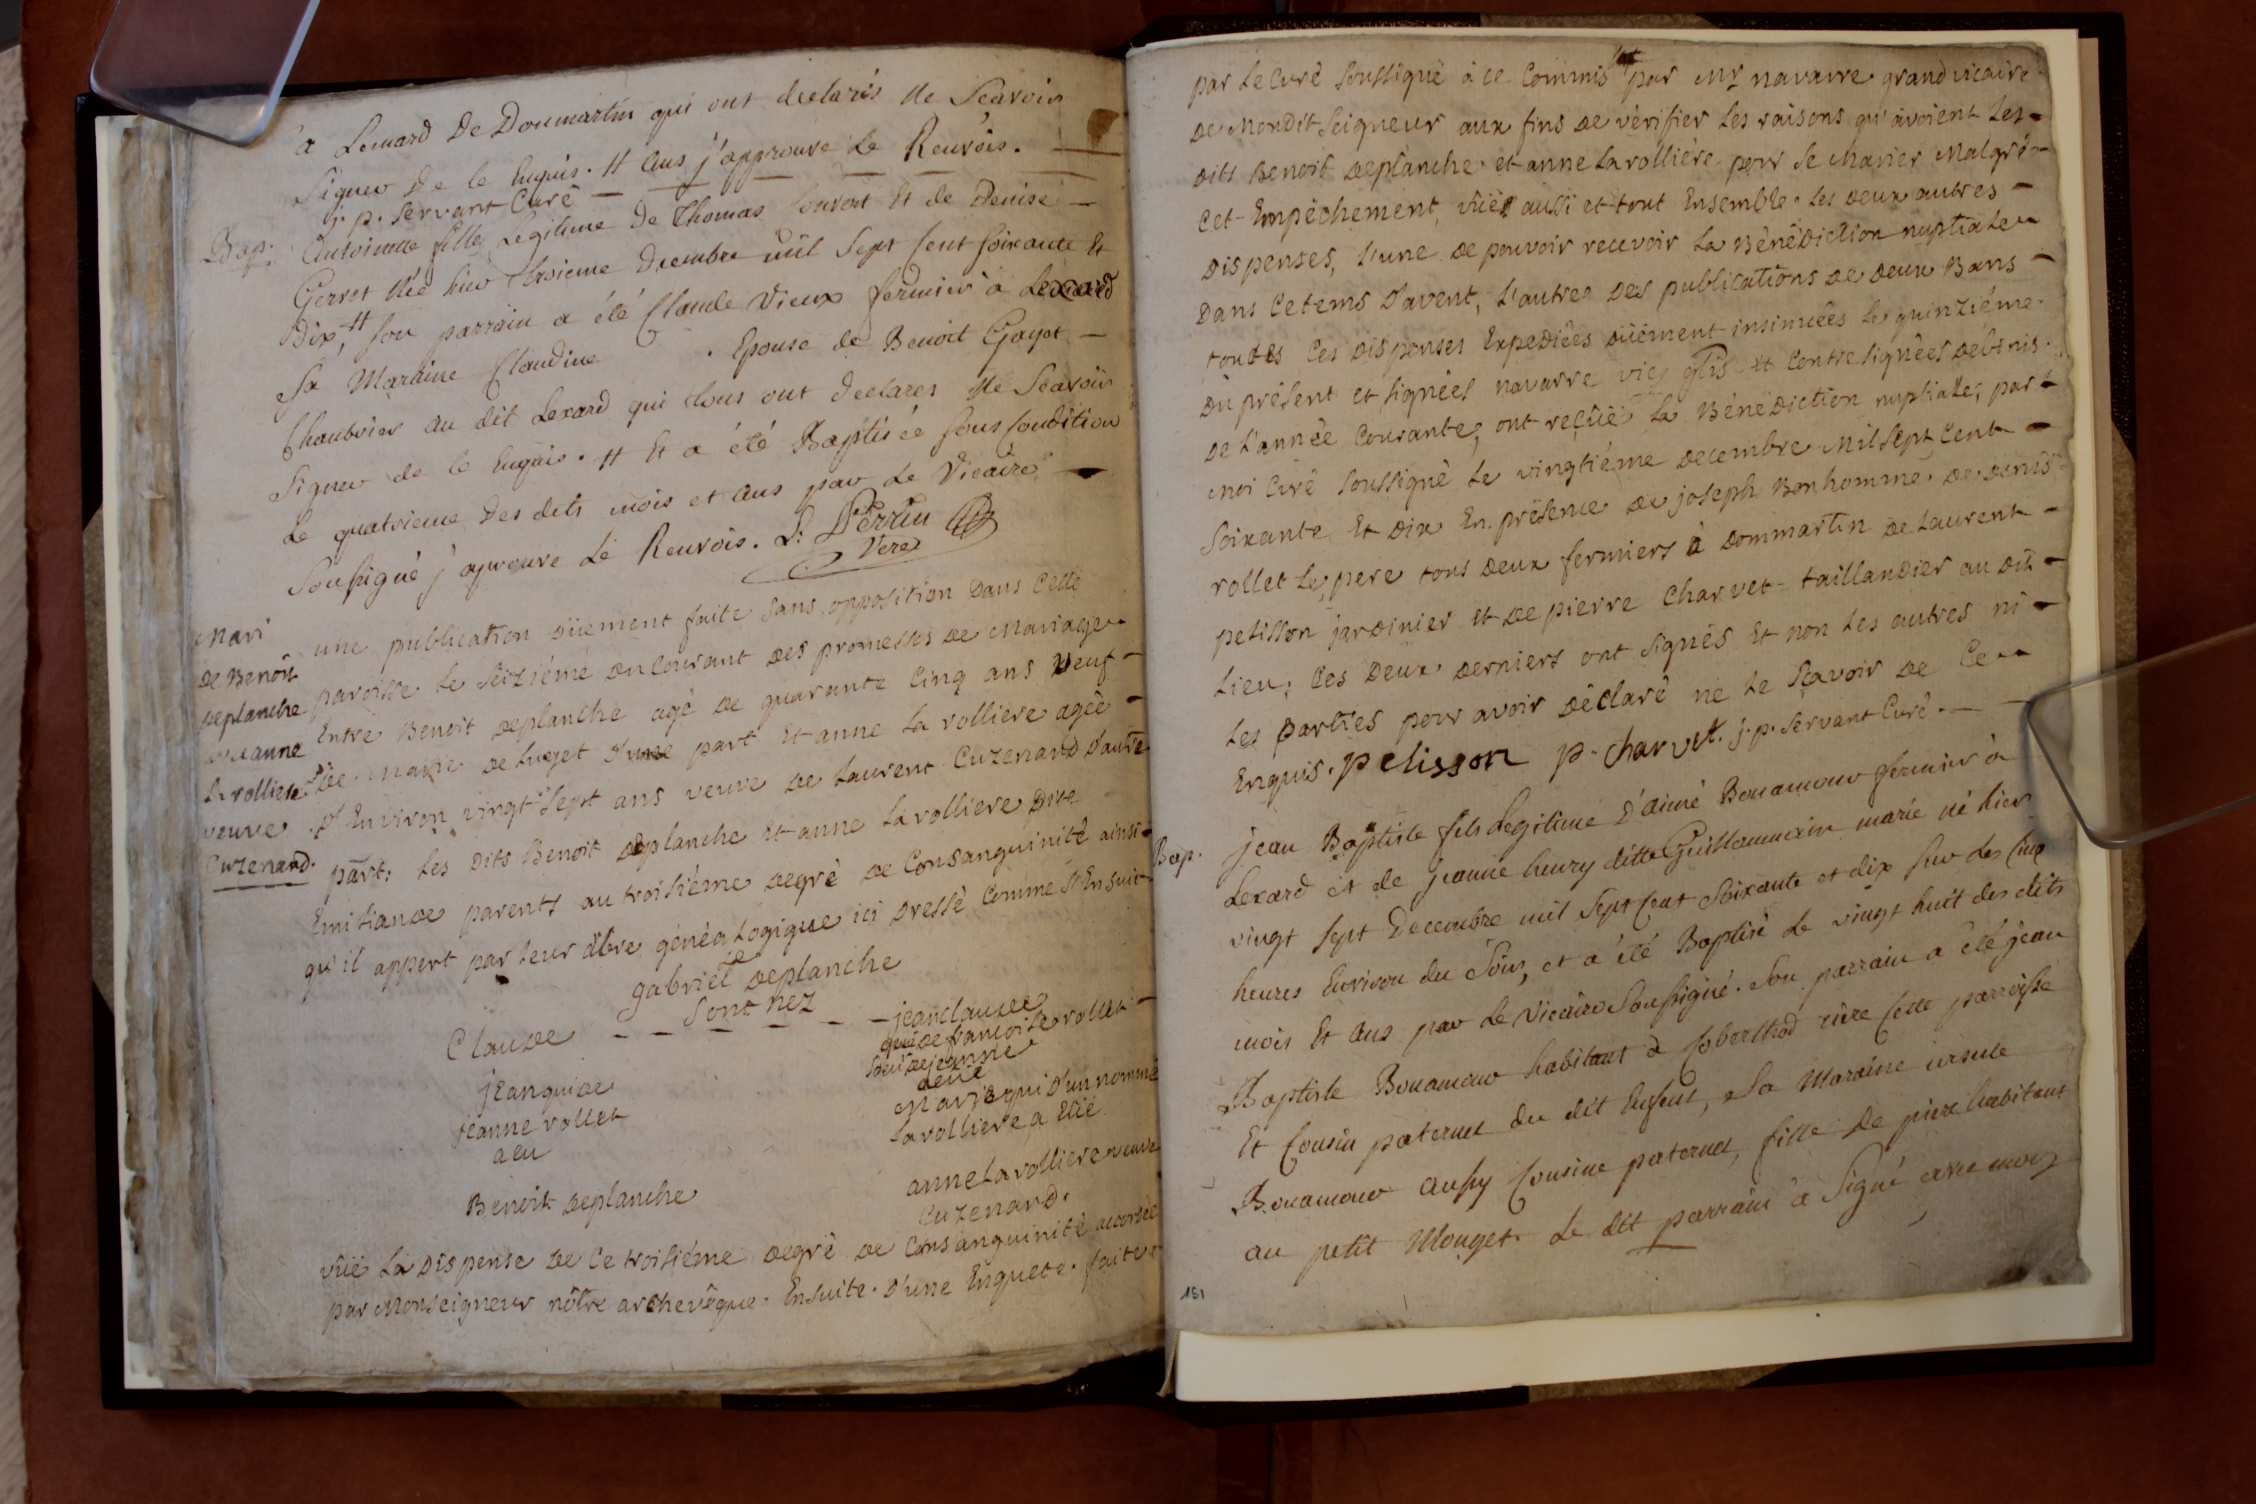 à Lenard De Dommartin qui ont declarés Ne Scavoir
Signer De le Enquis. H Ans j'approuve Le Renvois.
j. p. Servant Curé
Bap. Antoinette fille Legitime De Thomas Et de Denise
née hier troisieme Decembre mil Sept Cent soixante Et
Dix, H son parrain a été Claude Vieux fermier à Lexard
Sa Maraine Claudine . Epouse de Benoit Gayot
au dit Lexard qui tous ont declares Ne Scavoir
Signer de le Enquis. H Et a été Baptisée Sous Condition
Le quatrieme Des dits mois et ans par Le Vicaire
Soussigné j'aprouve Le Renvois. L: Perrin
Vere
Mari
De Benoit
Deplanche
et anne
La rolliere
veuve
Cuzenard.
une publication düement faite sans opposition Dans Cette
paroisse Le Seiziéme du Courant Des promesses De Mariage
Entre Benoit Deplanche agé De quarante Cinq ans Veuf
De Marie De Luget D'une part Et anne La rolliere agée
D'Environ vingt Sept ans veuve De Laurent Cuzenard D'autre
part: Les Dits Benoit Deplanche Et anne La rolliere Dite
Emiliande parents au troisiéme Degré De Consanguinité ainsi
qu'il appert par Leur albre généalogique ici Dressé Comme S'Ensuit
De
gabriel Deplanche
Sont nez
Claude — — — — — — jean claude
qui De francoise rollet
jeanguide
jeanne rollet
a Eu
Marie qui D'un nommé
La rolliere a Eüé
Benoit Deplanche
anne La rolliere veuve
Cuzenard.
vüe La Dispense De Ce troisiéme Degré De Consanguinité accordée
par Monseigneur nôtre archevêque. Ensuite. D'une Enquete. faite
par Le Curé Soussigné à ce Commis par Mr navarre grand vicaire
De Mondit Seigneur aux fins De vérifier Les raisons qu'avoient Les
Dits Benoit Deplanche et anne La rolliére pour Se Marier Malgré
Cet Empêchement, vües aussi et tout Ensemble. Les Deux autres
Dispenses, L'une De pouvoir recevoir La Bénédiction nuptiale
Dans Ce tems D'avent, L'autre Des publications De Deux Bans
toutes Ces Dispenses Expediées Düement insinuées Le quinziéme
Du présent et Signées navarre vic. glis. Et Contresignées Debenis.
De L'année Courante, ont reçûe La Bénédiction nuptiale; par
moi Curé Soussigné Le vingtiéme Decembre Mil Sept Cent
Soixante Et Dix En présence De joseph Bonhomme De Denis
rollet Le pere tous Deux fermiers à Dommartin De Laurent
pelisson jardinier Et De pierre Charvet taillandier au Dit
Lieu; Ces Deux Derniers ont Signés Et non Les autres ni
Les parties pour avoir Déclaré ne Le Sçavoir De Ce
Enquis. pelisson p. charvet. j. p. Servant Curé.
Bap. jean Baptiste fils Legitime D'aimé Bonamour fermier à
Lexard et de jeanne henry ditte Guillaumexin marié né hier
vingt Sept Decembre mil Sept Cent Soixante et dix Sur les Cinq
heures Environ du Soir, et a été Baptisé Le vingt huit des dits
mois Et Ans par Le Vicaire Soussigné. Son parrain a été jean
Baptiste Bonamour habitant à rière cette paroisse
Et Cousin paternel du dit Enfant, Sa Maraine ursule
Bonamour aussy Cousine paternel, fille De pierre habitant
au petit Mouget. Le dit parrain a Signé avec moy
151